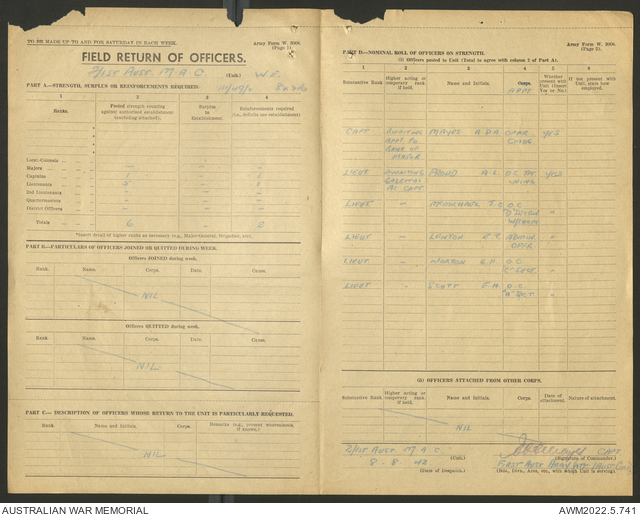 TO BE MADE UP TO AND FOR SATURDAY IN EACH WEEK.
Army Form W. 3008.
(Page 1).
FIELD RETURN OF OFFICERS.
2/1ST AUST. M.A.C. (Unit.) W.E.
PART A.—STRENGTH, SURPLUS OR REINFORCEMENTS REQUIRED:
1 2 3 4
Ranks. Posted strength counting against authorised establishment (excluding attached). Surplus to Establishment. Reinforcements required (i.e., deficits on establishment)
Lieut.-Colonels
Majors
Captains 1 - 1
Lieutenants 5 - 1
2nd Lieutenants
Quartermasters
District Officers
Totals 6 - 2
*Insert detail of higher ranks as necessary (e.g., Major-General, Brigadier, etc).
PART B.—PARTICULARS OF OFFICERS JOINED OR QUITTED DURING WEEK.
Officers JOINED during week.
Rank. Name. Corps. Rank. Name. Corps.
NIL
Officers QUITTED during week.
Rank. Name. Corps. Rank. Name. Corps.
NIL
PART C.— DESCRIPTION OF OFFICERS WHOSE RETURN TO THE UNIT IS PARTICULARLY REQUESTED.
Rank. Name and Initials. Corps. Remarks (e.g., present whereabouts, if known.)
NIL
Army Form W. 3008.
(Page 2).
PART D.—NOMINAL ROLL OF OFFICERS ON STRENGTH.
(i) Officers posted to Unit (Total to agree with column 2 of Part A).
1 2 3 4 5 6
Substantive Rank Higher acting or temporary rank if held. Name and Initials. Corps. APPT Whether present with Unit (Insert Yes or No.) If not present with Unit, state how employed.
CAPT AWAITING APPT TO RANK OF MAJOR MAYES A D A OFFR. CMDG YES
LIEUT AWAITING A L YES
LIEUT - O.C.
LIEUT - OFFR "
LIEUT - O.C. "C" SECT "
LIEUT - SCOTT F A O.C. "A" SECT "
(ii) OFFICERS ATTACHED FROM OTHER CORPS.
Substantive Rank Higher acting or temporary rank if held. Name and Initials. Corps. Date of attachment. Nature of attachment.
NIL
2/1ST AUST. M.A.C. (Unit.) CAPT
(Signature of Commander.)
8.8.42 FIRST AUST ARMY
(Date of Despatch.) (Bde., Divn., Area, etc., with which Unit is serving).
AUSTRALIAN WAR MEMORIAL
AWM2022.5.741